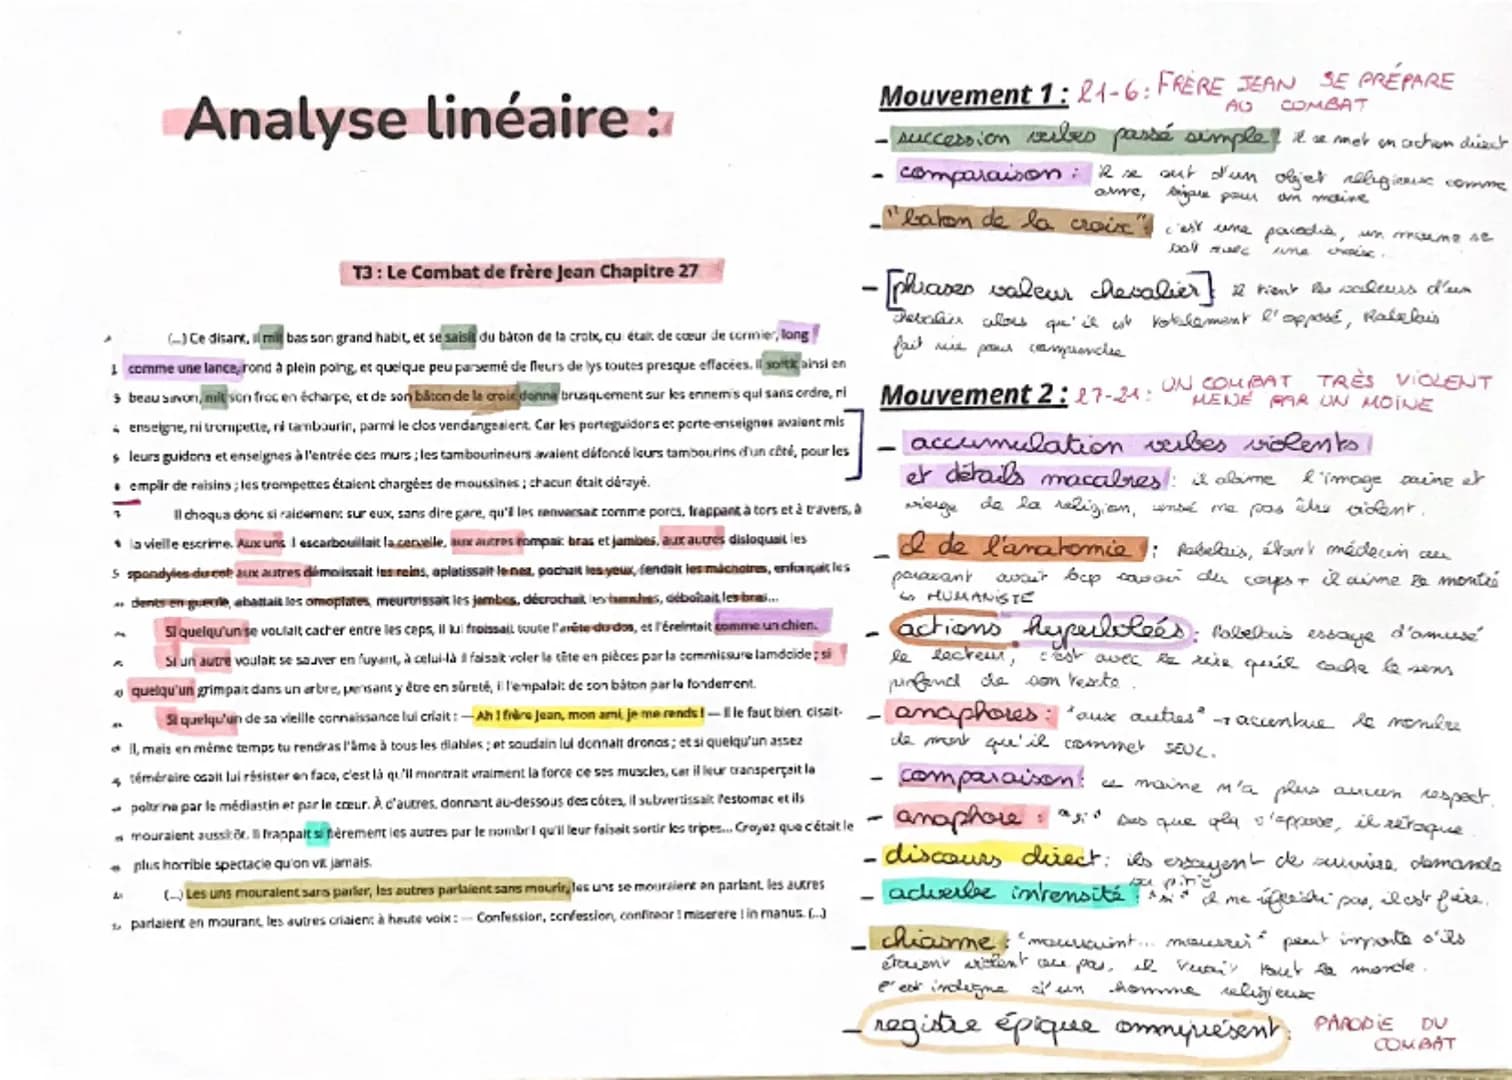 Analyse linéaire :
T3 : Le Combat de frère Jean Chapitre 27
(...) Ce disant, il mit bas son grand habit, et se saisit du bâton de la croix, qui était de cœur de cormier, long
comme une lance, rond à plein poing, et quelque peu parsemé de fleurs de lys toutes presque effacées. Il sortit ainsi en
3 beau sayon, mit son froc en écharpe, et de son bâton de la croix donna brusquement sur les ennemis qui sans ordre, ni
4 enseigne, ni trompette, ni tambourin, parmi le clos vendangeaient. Car les porteguidons et porte-enseignes avaient mis
5 leurs guidons et enseignes à l'entrée des murs ; les tambourineurs avaient défoncé leurs tambourins d'un côté, pour les
6 emplir de raisins ; les trompettes étaient chargées de moussines ; chacun était dérayé.
7 Il choqua donc si raidement sur eux, sans dire gare, qu'il les renversait comme porcs, frappant à tors et à travers, à
la vieille escrime. Aux uns il escarbouillait la cervelle, aux autres rompait bras et jambes, aux autres disloquait les
spondyles du col, aux autres démolissait les reins, aplatissait le nez, pochait les yeux, fendait les mâchoires, enfonçait les
dents en gueule, abattait les omoplates, meurtrissait les jambes, décrochait les hanches, déboîtait les bras...
Si quelqu'un se voulait cacher entre les ceps, il lui froissait toute l'arête du dos, et l'éreintait comme un chien.
Si un autre voulait se sauver en fuyant, à celui-là il faisait voler la tête en pièces par la commissure lamdoïde ; si
quelqu'un grimpait dans un arbre, pensant y être en sûreté, il l'empalait de son bâton par le fondement.
Si quelqu'un de sa vieille connaissance lui criait : — Ah ! frère Jean, mon ami, je me rends ! — Il le faut bien, disait-
il, mais en même temps tu rendras l'âme à tous les diables ; et soudain lui donnait dronos ; et si quelqu'un assez
téméraire osait lui résister en face, c'est là qu'il montrait vraiment la force de ses muscles, car il leur transperçait la
poitrine par le médiastin et par le cœur. À d'autres, donnant au-dessous des côtes, il subvertissait l'estomac et ils
mouraient aussitôt. Il frappait si fièrement les autres par le nombril qu'il leur faisait sortir les tripes... Croyez que c'était le
plus horrible spectacle qu'on vit jamais.
(...) Les uns mouraient sans parler, les autres parlaient sans mourir, les uns se mouraient en parlant, les autres
parlaient en mourant, les autres criaient à haute voix : — Confession, confession, confiteor ! miserere ! in manus. (...)
Mouvement 1 : l1-6 : FRÈRE JEAN SE PRÉPARE
AU COMBAT
- succession verbes passé simple : il se met en action direct
- comparaison : il se sert d'un objet religieux comme
arme, bizare pour un moine
- "baton de la croix" : c'est une parodie, un moine se
bat avec une croix.
- [phrases valeur chevalier] : il tient les valeurs d'un
chevalier alors qu'il est totalement l'opposé, Rabelais
fait rire pour comprendre
Mouvement 2 : l7-21 : UN COMBAT TRÈS VIOLENT
MENÉ PAR UN MOINE
- accumulation verbes violents
et détails macabres : il abime l'image saine et
vierge de la religion, censé ne pas être violent.
- cl de l'anatomie : Rabelais, étant médecin au
paravant avait bcp savoir du corps + il aime le montré
↳ HUMANISTE
- actions hyperbolées : Rabelais essaye d'amusé
le lecteur, c'est avec le rire qu'il cache le sens
profond de son texte.
- anaphores : "aux autres" → accentue le nombre
de mort qu'il commet SEUL.
- comparaison : ce moine n'a plus aucun respect.
- anaphore : "si" dès que qlq s'oppose, il rétoque
- discours direct : ils essayent de survivre, demande
sa pitié
- adverbe intensité : "si" il ne réfléchi pas, il est fière.
- chiasme : "mouraient... mourir" peut importe s'ils
étaient violent ou pas, il tuait tout le monde.
c'est indigne d'un homme religieux
- registre épique omniprésent : PARODIE DU
COMBAT